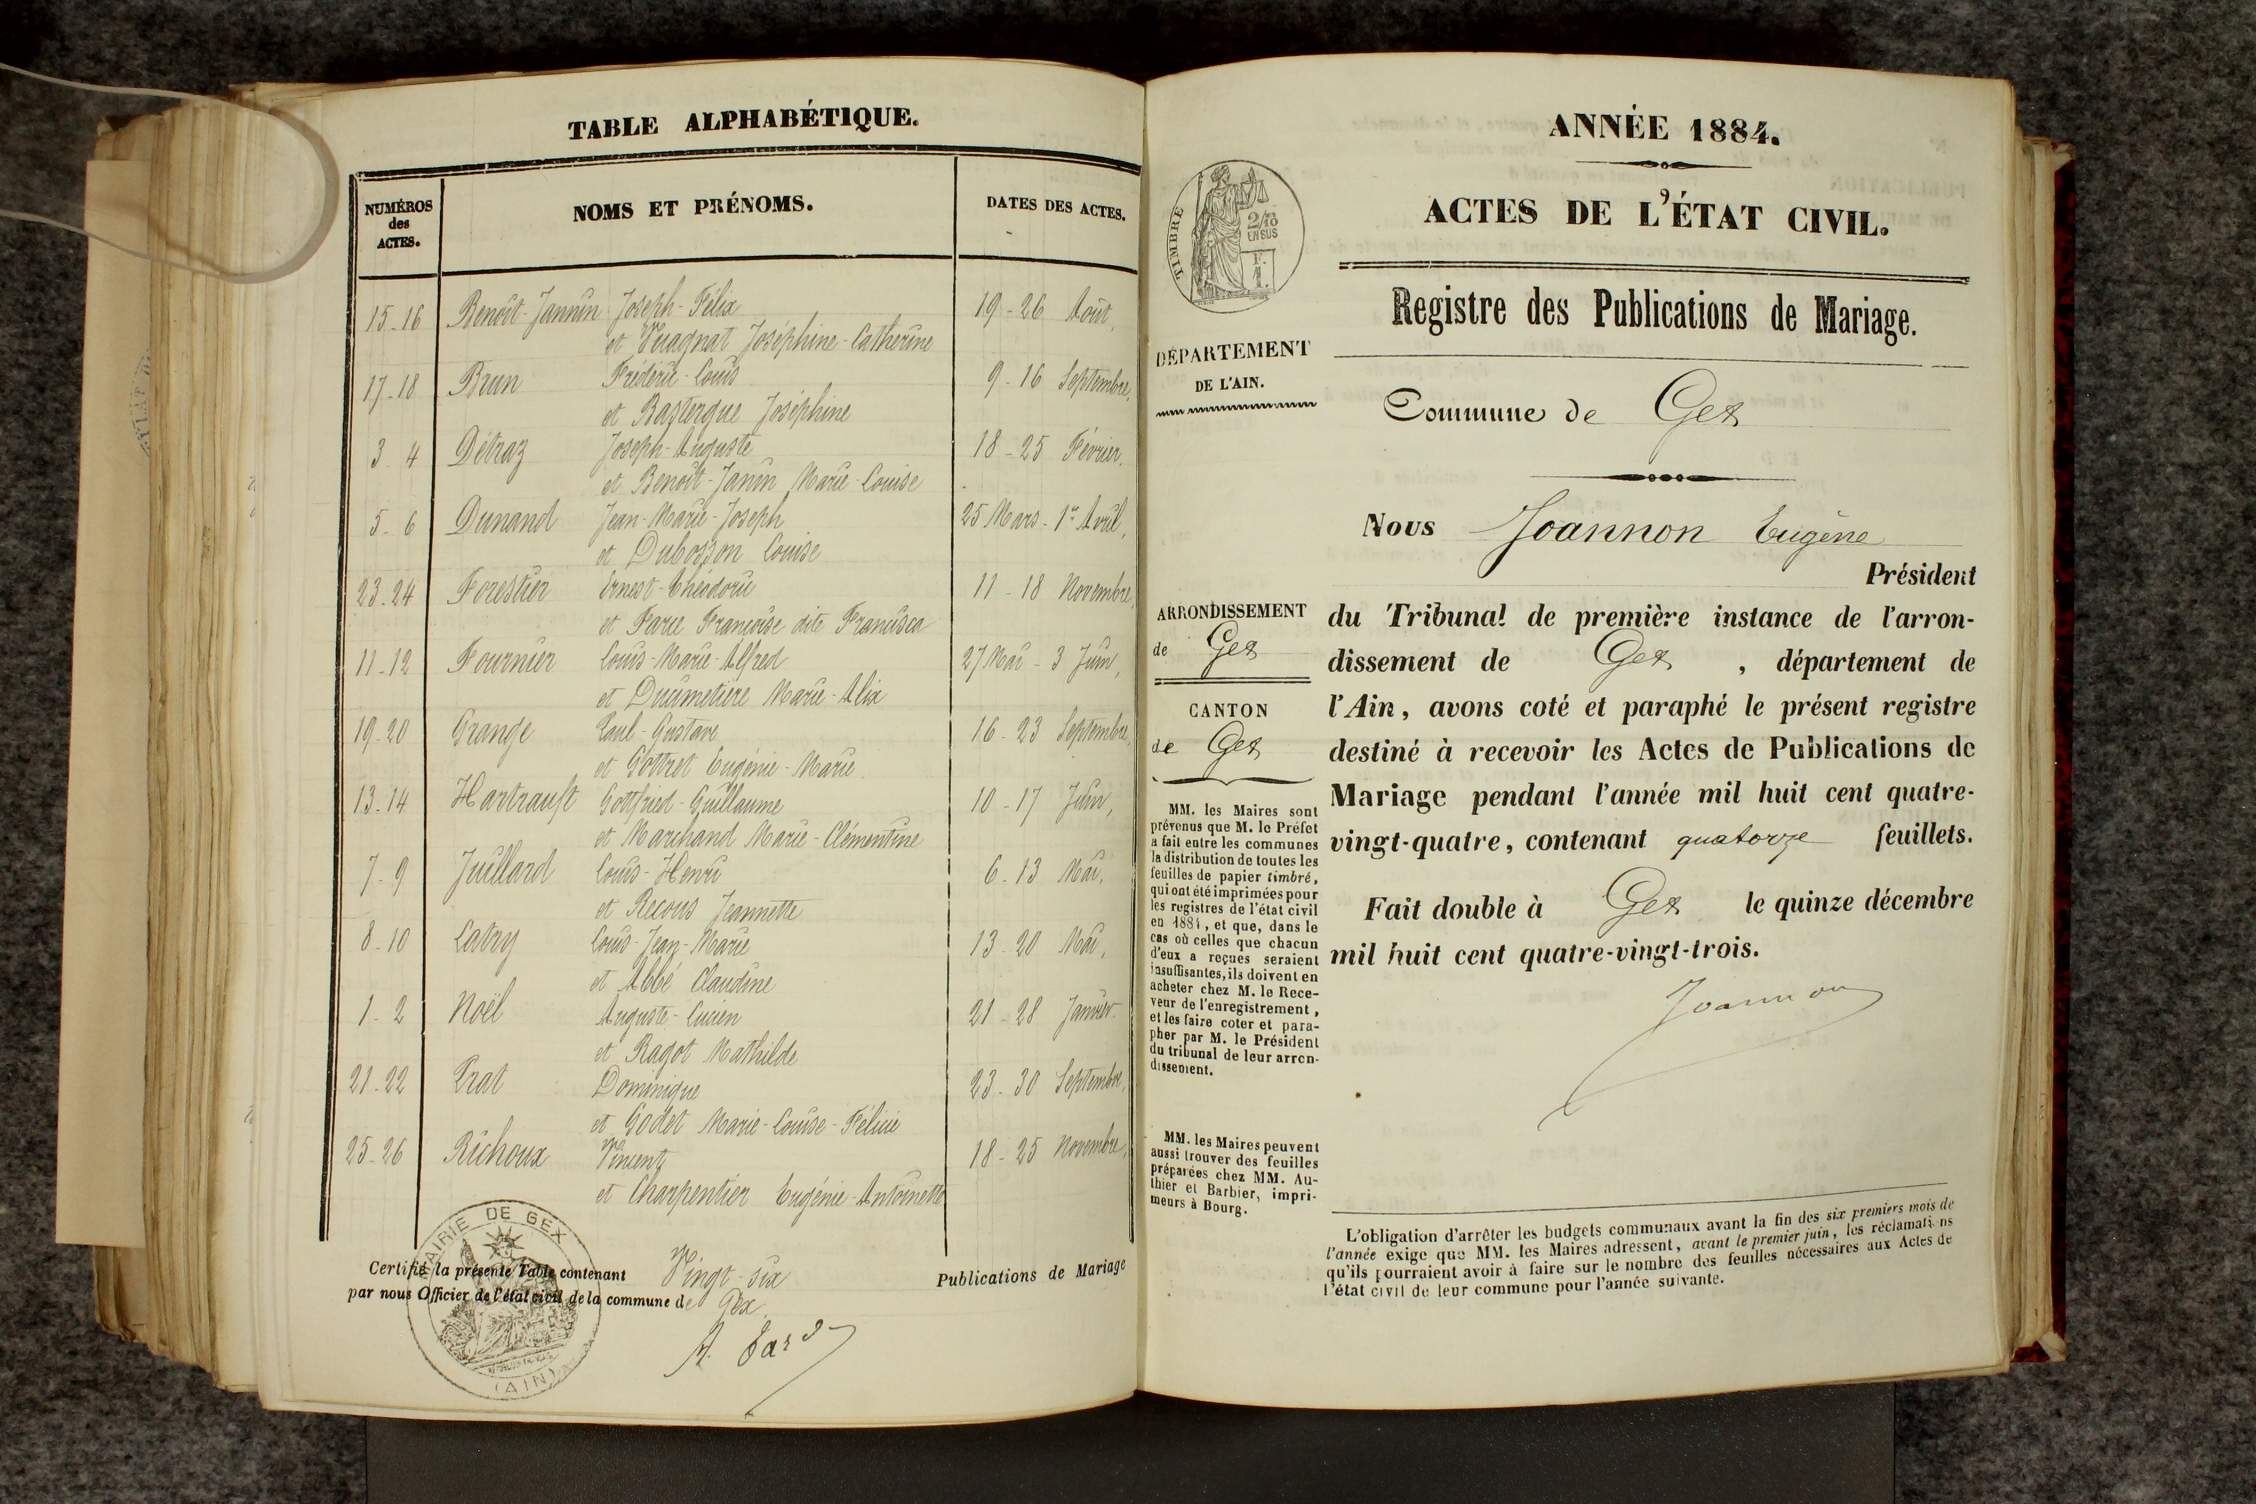 TABLE ALPHABÉTIQUE.
NUMÉROS
des
ACTES.
NOMS ET PRÉNOMS.
DATES DES ACTES.
15-16 Benoît-Jannin Joseph-Félix 19-26 Août,
et Vuagnat Joséphine-Catherine
17-18 Brun Frédéric-Louis 9-16 Septembre,
et Basterque Joséphine
3-4 Détraz Joseph-Auguste 18-25 Février.
et Benoît-Janin Marie-Louise
5-6 Dunand Jean-Marie-Joseph 25 Mars-1er Avril,
et Dubosson Louise
23-24 Forestier Ernest-Théodore 11-18 Novembre,
et Française dite Francisca
11-12 Fournier Louis-Marie-Alfred 27 Mai-3 Juin,
et Ducimetiere Marie-Alix
19-20 Grange Paul-Gustave 16-23 Septembre,
et Gottret Eugénie-Marie
13-14 Hartrauft Gottfried-Guillaume 10-17 Juin,
et Marchand Marie-Clémentine
7-9 Juillard Louis-Henri 6-13 Mai,
et Recous Jeannette
8-10 Latry Louis-Jean-Marie 13-20 Mai,
et Abbé Claudine
1-2 Noël Auguste-Lucien 21-28 Janvier
et Ragot Mathilde
21-22 Prat Dominique 23-30 Septembre,
et Godet Marie-Louise-Félicie
25-26 Richoux Vincent 18-25 Novembre,
et Charpentier Eugénie-Antoinette
MAIRIE DE GEX
(AIN)
Certifié la présente Table contenant Vingt-six Publications de Mariage
par nous Officier de l'état civil de la commune de Gex
ANNÉE 1884.
ACTES DE L'ÉTAT CIVIL.
TIMBRE
2/10
EN SUS
F.
1.
Registre des Publications de Mariage.
DÉPARTEMENT
DE L'AIN.
Commune de Gex
Nous Joannon Eugène
Président
ARRONDISSEMENT
de Gex
CANTON
de Gex
du Tribunal de première instance de l'arron-
dissement de Gex , département de
l'Ain, avons coté et paraphé le présent registre
destiné à recevoir les Actes de Publications de
Mariage pendant l'année mil huit cent quatre-
vingt-quatre, contenant quatorze feuillets.
Fait double à Gex le quinze décembre
mil huit cent quatre-vingt-trois.
Joannon
MM. les Maires sont
prévenus que M. le Préfet
a fait entre les communes
la distribution de toutes les
feuilles de papier timbré,
qui ont été imprimées pour
les registres de l'état civil
en 1884, et que, dans le
cas où celles que chacun
d'eux a reçues seraient
insuffisantes, ils doivent en
acheter chez M. le Rece-
veur de l'enregistrement,
et les faire coter et para-
pher par M. le Président
du tribunal de leur arron-
dissement.
MM. les Maires peuvent
aussi trouver des feuilles
préparées chez MM. Au-
thier et Barbier, impri-
meurs à Bourg.
L'obligation d'arrêter les budgets communaux avant la fin des six premiers mois de
l'année exige que MM. les Maires adressent, avant le premier juin, les réclamations
qu'ils pourraient avoir à faire sur le nombre des feuilles nécessaires aux Actes de
l'état civil de leur commune pour l'année suivante.